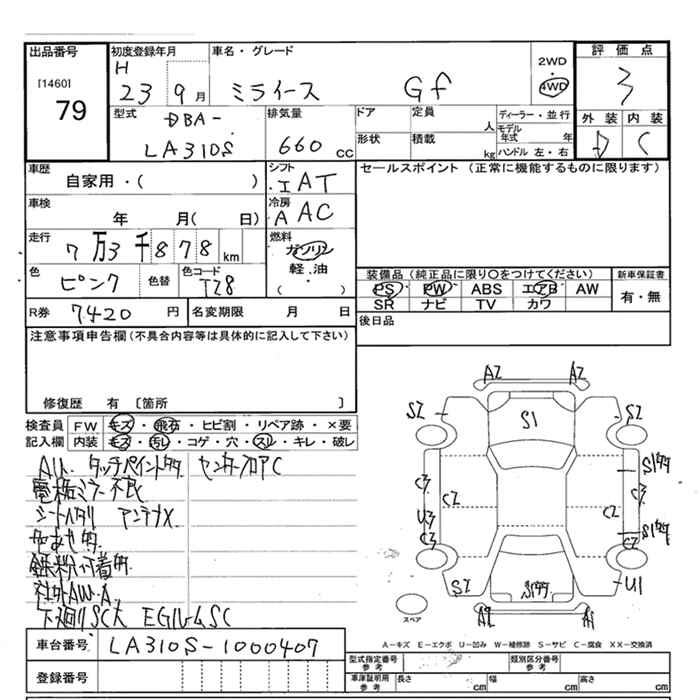 出品番号
[1460]
79
初度登録年月
H
23 9 月
車名・グレード
ミライース Gf
2WD
・
4WD
評価点
3
外装 内装
D C
型式
DBA-
LA310S
排気量
660 cc
ドア
定員
人
形状
積載
kg
ディーラー・並行
モデル年式 年
ハンドル 左・右
車歴
自家用・( )
シフト
・I AT
セールスポイント (正常に機能するものに限ります)
車検
年 月( 日)
冷房
A AC
走行
7万3千878 km
燃料
ガソリン
軽.油
( )
色
ピンク
色替
色コード
T28
装備品 (純正品に限り○をつけてください)
PS PW ABS エアB AW
SR ナビ TV カワ
新車保証書
有・無
R券 7420 円
名変期限 月 日
後日品
注意事項申告欄(不具合内容等は具体的に記入して下さい)
修復歴 有 〔箇所 〕
検査員記入欄
FW キズ・飛石・ヒビ割・リペア跡・×要
内装 キズ・汚レ・コゲ・穴・スレ・キレ・破レ
Aハ、タッチペイント多々 センターフロアC
電格ミラー不良
シートヘタリ アンテナX
色あせ有
鉄粉付着有
社外AW-A
下廻りSC大 EGルームSC
A2 A2
S2 S1 S2
S1タタ
C3 C2 C3
U3 C2
C3 S1タタ
C2
S2 S1タタ U1
A2 A1
スペア
A-キズ E-エクボ U-凹み W-補修跡 S-サビ C-腐食 XX-交換済
車台番号 LA310S-1000407
登録番号
型式指定番号参考
類別区分番号参考
車庫証明用参考
長さ cm
幅 cm
高さ cm